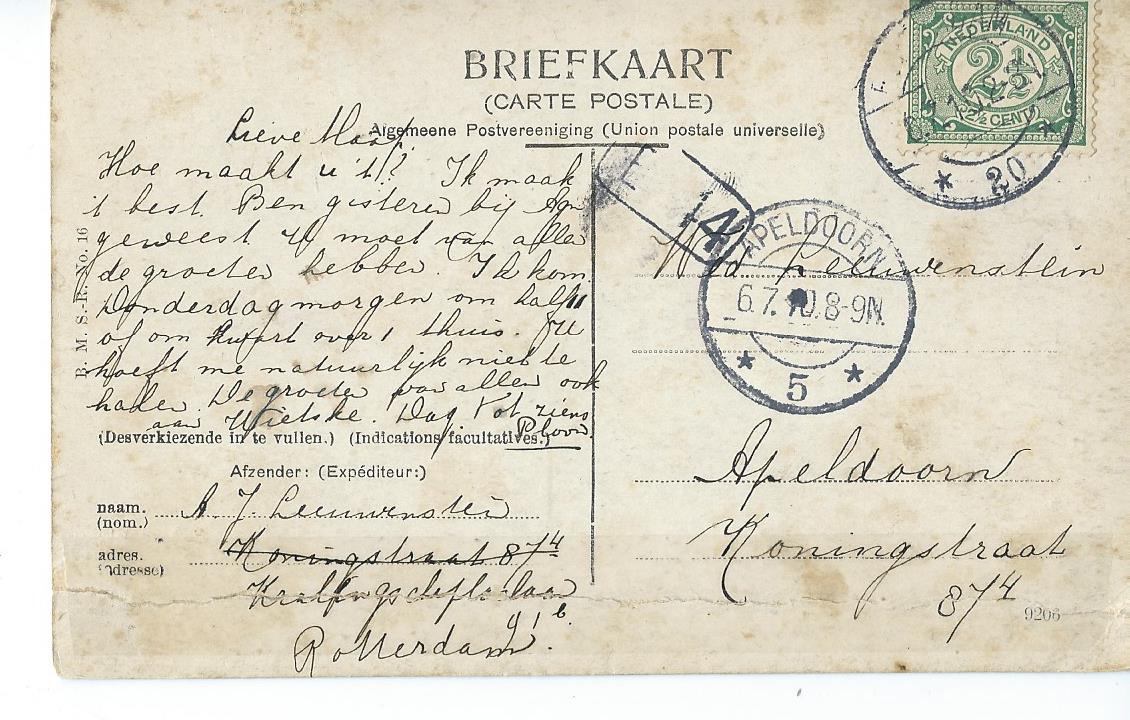 BRIEFKAART
(CARTE POSTALE)
Algemeene Postvereeniging (Union postale universelle)
NEDERLAND
2½
2½ CENT
20
14
APELDOORN
6.7.10.8-9N.
5
Lieve Maatj.
Hoe maakt u 't? Ik maak
't best. Ben gisteren bij
geweest U moet van allen
de groeten hebben. Ik kom
Donderdagmorgen om half 1
of om kwart over 1 thuis. U
hoeft me natuurlijk niet te
halen. De groeten van allen ook
aan Wietske. Dag, tot ziens
(Desverkiezende in te vullen.) (Indications facultatives.)
Afzender: (Expéditeur:)
naam. A J. Leeuwenstein
(nom.)
adres. Koningstraat 87⁴
(adresse)
laan
91 b.
Rotterdam.
B. M. S.-R. No. 16
Leeuwenstein
Apeldoorn
Koningstraat
87⁴
9206